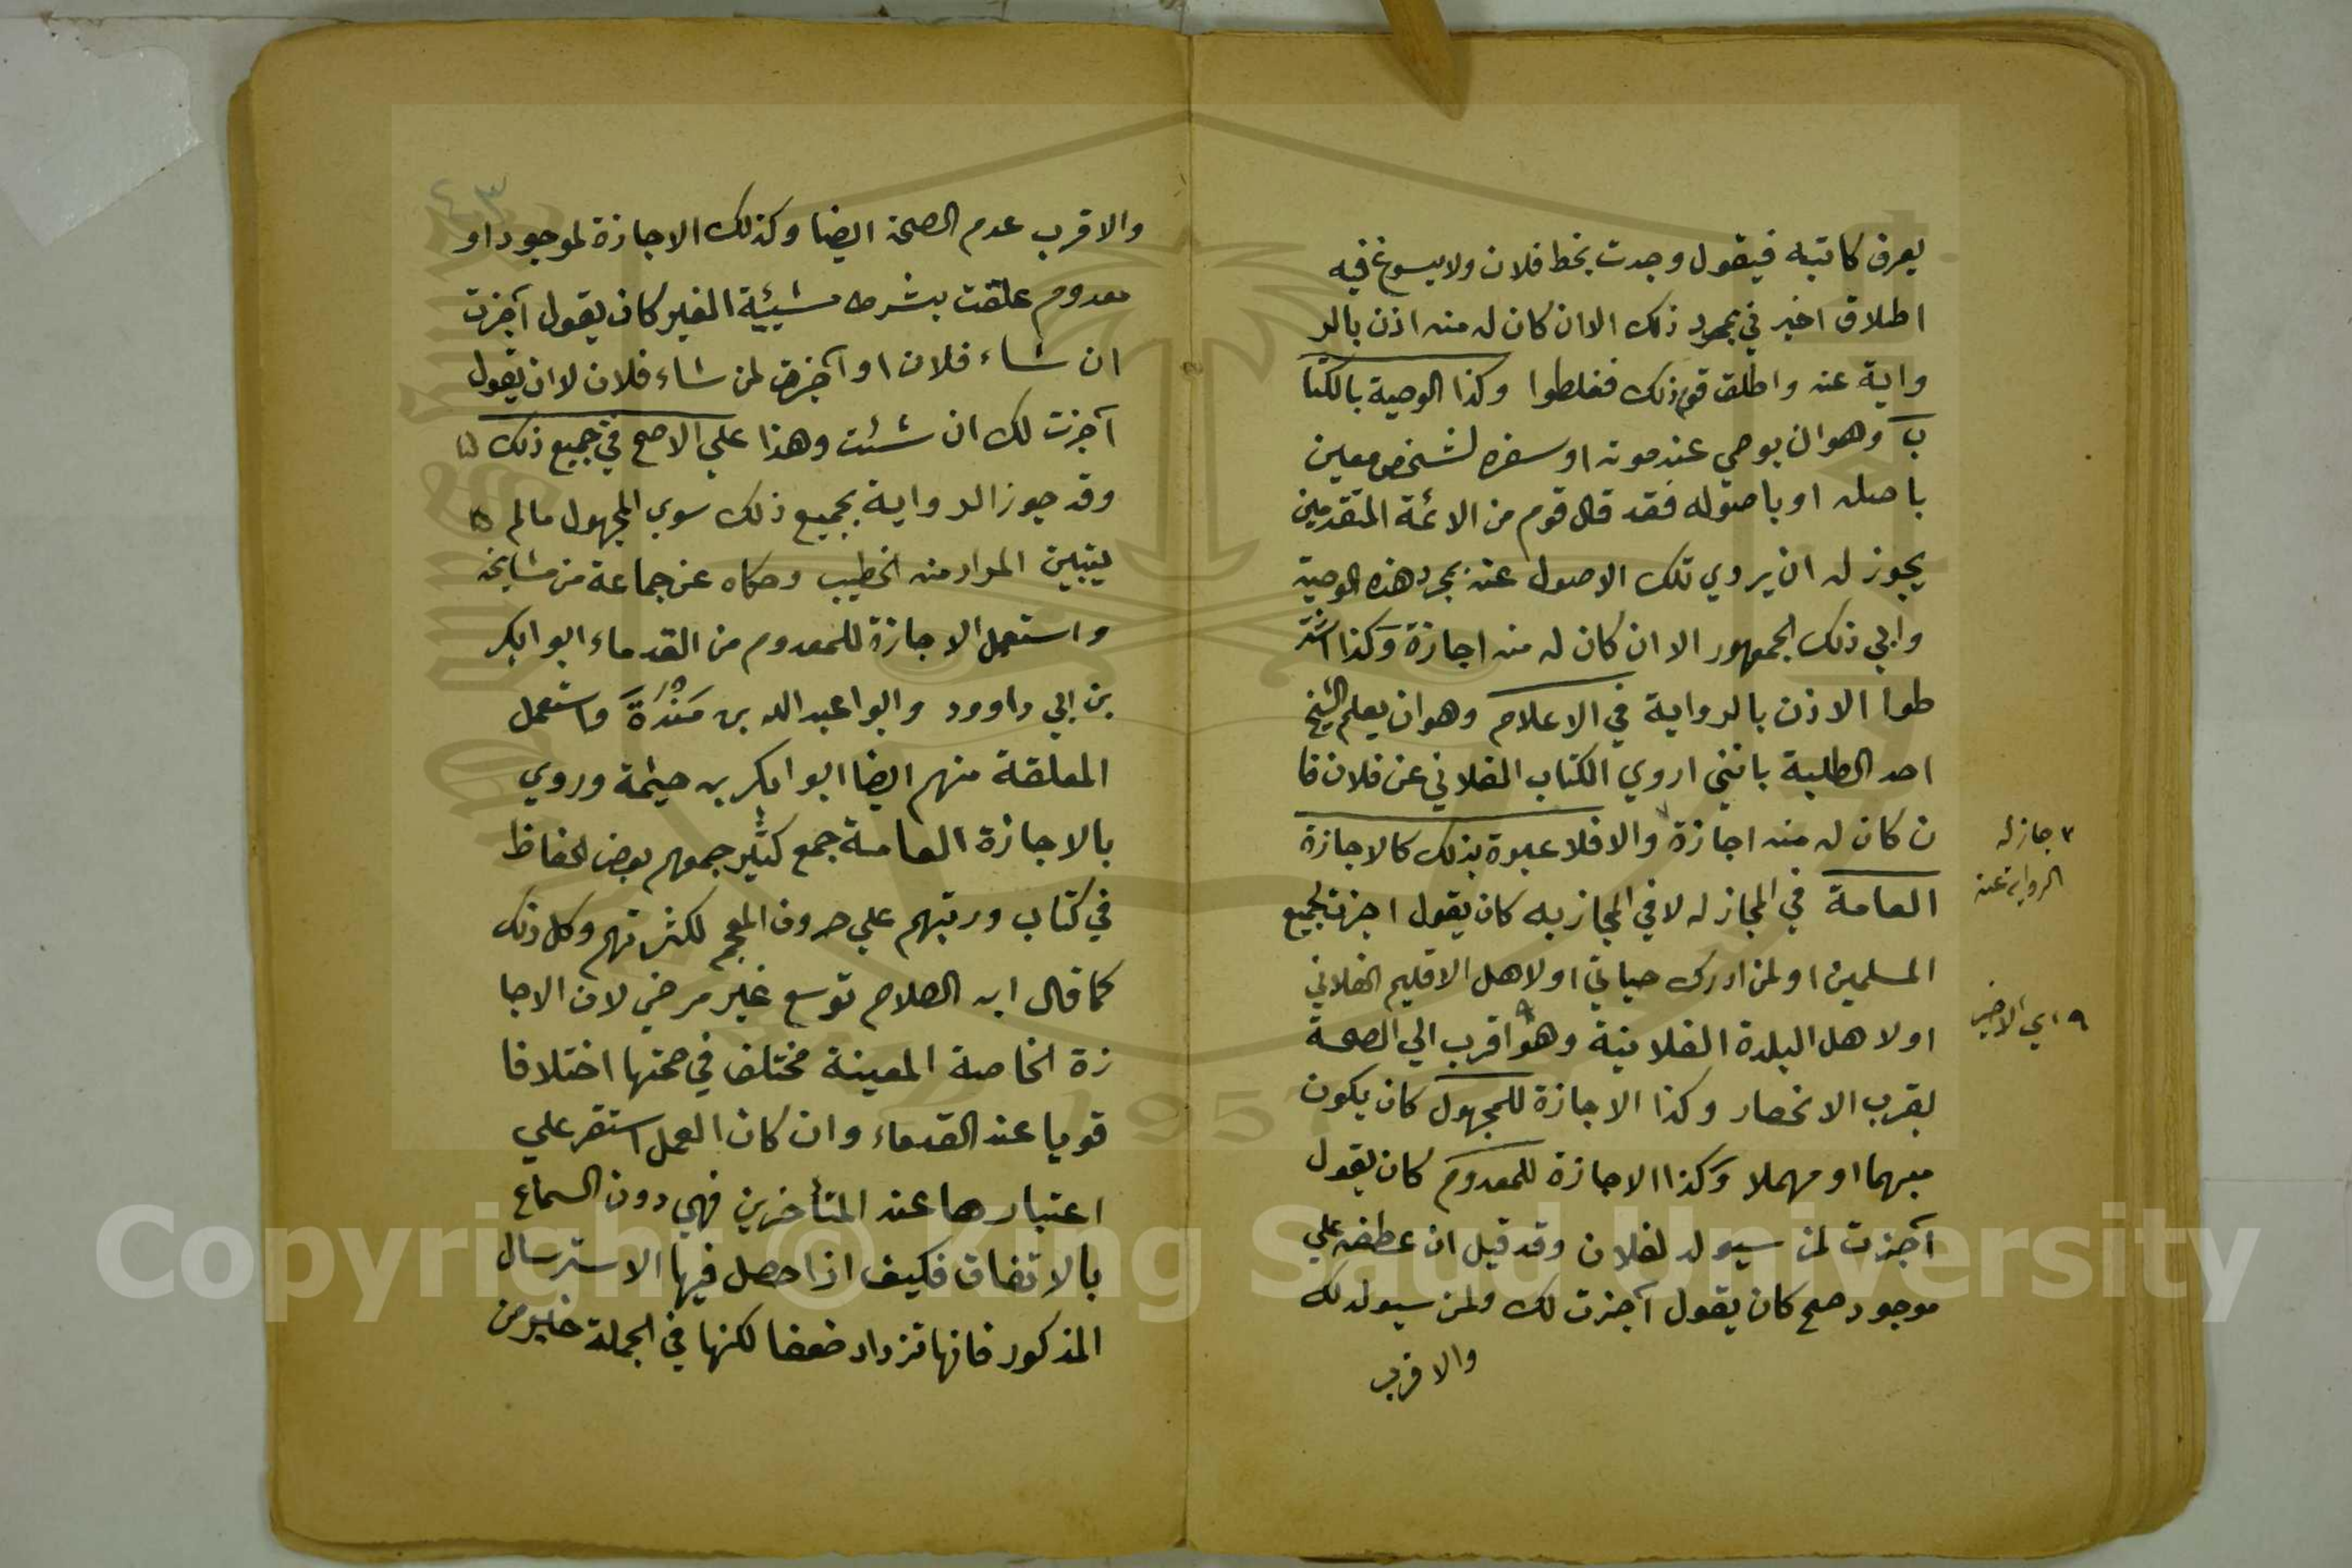 يعرف كاتبه فيقول وجدت بخط فلان ولا يسوغ فيه
اطلاق اخبر في بمجرد ذلك الا ان كان له منه اذن بالر
واية عنه واطلق قوم ذلك فغلطوا وكذا الوصية بالكتا
ب وهو ان يوصي عند موته او سفره لشخص معين
باصله او باصوله فقد قال قوم من الائمة المتقدمين
يجوز له ان يروي تلك الاصول عنه بمجرد هذه الوصية
وابي ذلك الجمهور الا ان كان له منه اجازة وكذا اشتر
طوا الاذن بالرواية في الاعلام وهو ان يعلم الشيخ
احد الطلبة بانني اروي الكتاب الفلاني عن فلان فا
ن كان له منه اجازة والا فلا عبرة بذلك كالاجازة
العامة في المجاز له لا في المجاز به كان يقول اجزت لجميع
المسلمين او لمن ادرك حياتي او لاهل الاقليم الفلاني
او لاهل البلدة الفلانية وهو اقرب الي الصحة
لقرب الانحصار وكذا الاجازة للمجهول كان يكون
مبهما او مهملا وكذا الاجازة للمعدوم كان يقول
آجزت لمن سيولد لفلان وقد قيل ان عطفه علي
موجود صح كان يقول آجزت لك ولمن سيولد لك
والاقرب
٣ جاز له
الرواية عنه
٩ اي الاخير
٤٣
والاقرب عدم الصحة ايضا وكذلك الاجازة لموجود او
معدوم علقت بشرط مشيية الغير كان يقول آجزت
ان شاء فلان او آجزت لمن شاء فلان لا ان يقول
آجزت لك ان شئت وهذا علي الاصح في جميع ذلك
وقد جوز الرواية بجميع ذلك سوي المجهول مالم
يتبين المراد منه الخطيب وحكاه عن جماعة من مشايخه
واستعمل الاجازة للمعدوم من القدماء ابو ابكر
بن ابي داوود وابوا عبد الله بن مَنْدَةَ واستعمل
المعلقة منهم ايضا ابوا بكر بن حيثمة وروي
بالاجازة العامة جمع كثير جمعهم بعض الحفاظ
في كتاب ورتبهم علي حروف المعجم لكثرتهم وكل ذلك
كما قال ابن الصلاح توسع غير مرضي لان الاجا
زة الخاصة المعينة مختلف في صحتها اختلافا
قويا عند القدماء وان كان العمل استقر علي
اعتبارها عند المتأخرين فهي دون السماع
بالاتفاق فكيف اذا حصل فيها الاسترسال
المذكور فانها تزداد ضعفا لكنها في الجملة خير من
Copyright © King Saud University
1957